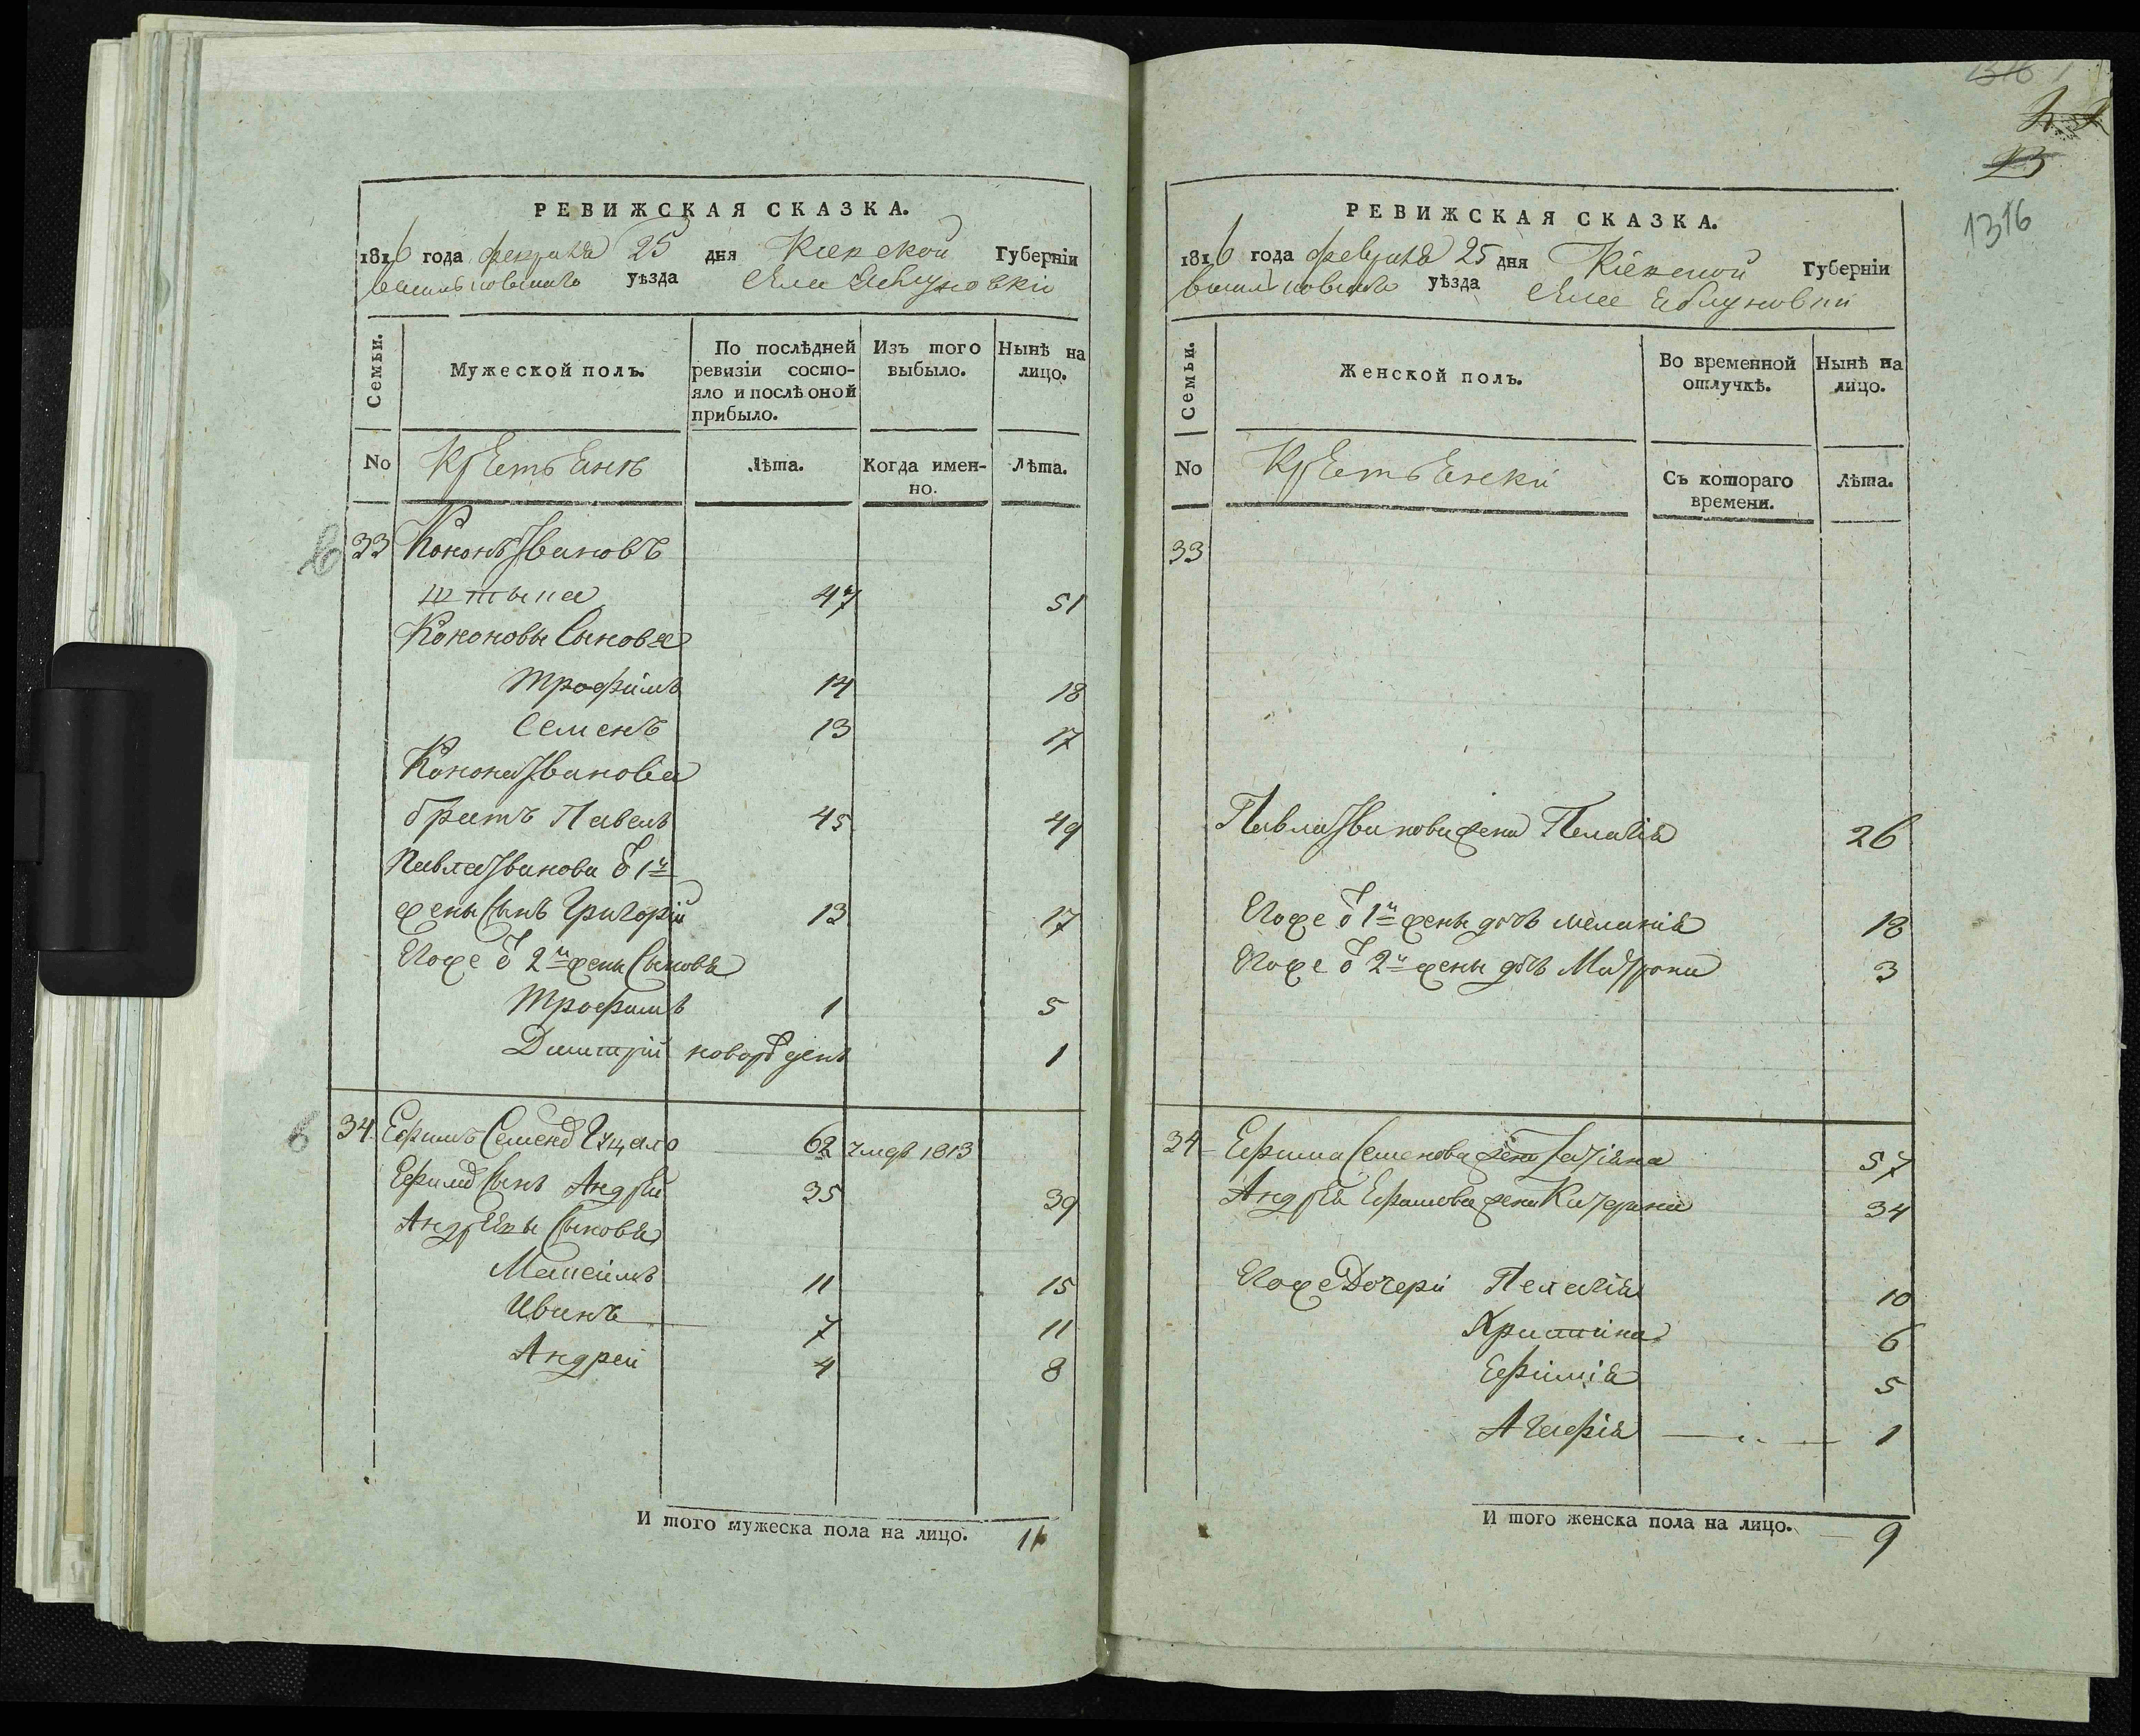 РЕВИЖСКАЯ СКАЗКА.
1816 года февраля 25 дня Кіевской Губерніи
васильковскаго уѣзда села Яблуновки
Семьи.
Мужеской полъ.
По послѣдней ревизіи состо-
яло и послѣ оной
прибыло.
Изъ того
выбыло.
Нынѣ на
лицо.
No
Крестьянъ
Лѣта.
Когда имен-
но.
Лѣта.
33 Кононъ Ивановъ
47 51
Кононовы Сыновья
Трофимъ 14 18
Семенъ 13 17
Конона Иванова
братъ Павелъ 45 49
Павла Иванова ѿ 1й
жены Сынъ Григорій 13 17
Егоже ѿ 2й жены Сыновья
Трофимъ 1 5
Димитрій новорожденъ 1
34 Ефимъ Семенов 62 умре 1813
Ефимов Сынъ Андрей 35 39
Андреевы Сыновья
Максимъ 11 15
Иванъ 7 11
Андрей 4 8
И того мужеска пола на лицо. 11
1316
РЕВИЖСКАЯ СКАЗКА.
1816 года февраля 25 дня Кіевской Губерніи
васильковскаго уѣзда села Яблуновки
Семьи.
Женской полъ.
Во временной
отлучкѣ.
Нынѣ на
лицо.
No
Крестьянки
Съ котораго
времени.
Лѣта.
33
Павла Иванова жена Пелагія 26
Егоже ѿ 1й жены дочь меланія 18
Егоже ѿ 2й жены дочь Матрона 3
34 Ефима Семенова жена Татіана 57
Андрея Ефимова жена Катерина 34
Егоже Дочери Пелагія 10
Христина 6
Ефимія 5
Агафія 1
И того женска пола на лицо. 9